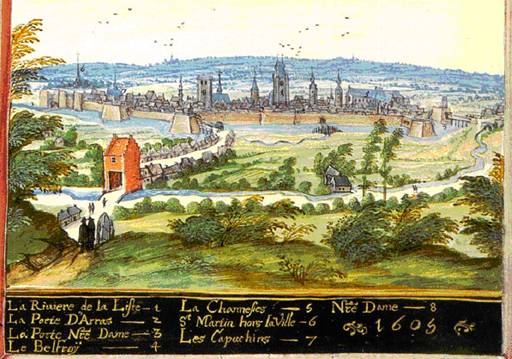 La Riviere de la Liste — 1
La Porte D'Arras — 2
La Porte Nre Dame — 3
Le Belfroÿ — 4
La Chameses — 5
St Martin hors la Ville — 6
Les Capuchins — 7
Nre Dame — 8
1605